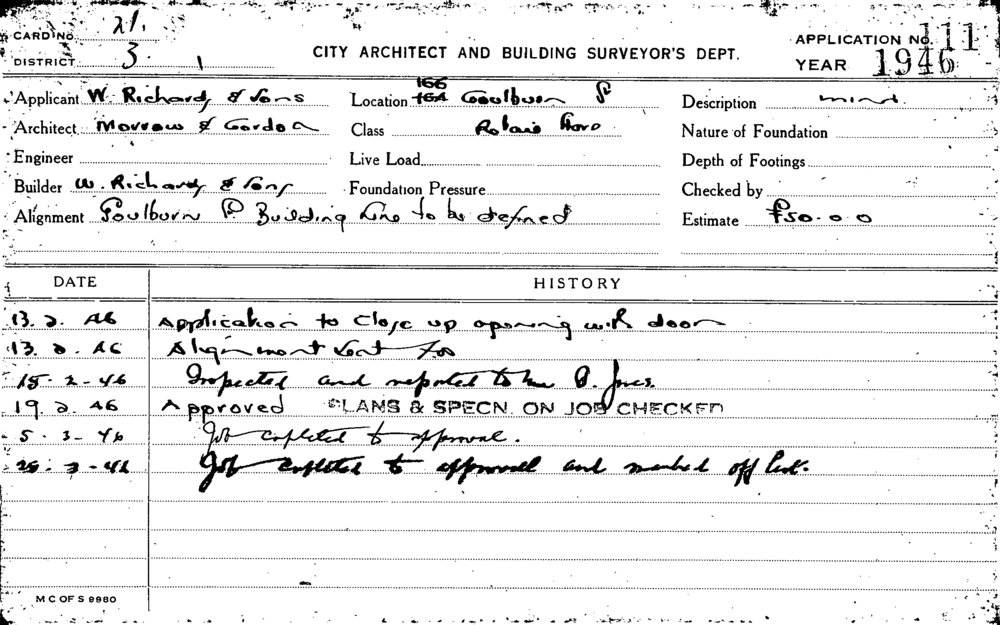 CARD No. 21.
DISTRICT 3.
CITY ARCHITECT AND BUILDING SURVEYOR'S DEPT.
APPLICATION No. 111
YEAR 1946
Applicant W. Richards & Sons
Location 166 164 Goulburn St
Description minor
Architect Morrow & Gordon
Class
Nature of Foundation
Engineer
Live Load
Depth of Footings
Builder W. Richards & Sons
Foundation Pressure
Checked by
Alignment Goulburn St Building line to be defined
Estimate £50.0.0
DATE HISTORY
13.2.46 Application to close up opening with door
13.2.46 Alignment sent for
15-2-46 Inspected and reported to Mr Jones.
19.2.46 Approved PLANS & SPECN. ON JOB CHECKED
5-3-46 Job completed to approval.
3-46 Job completed to approval and marked off list.
M C OF S 9980